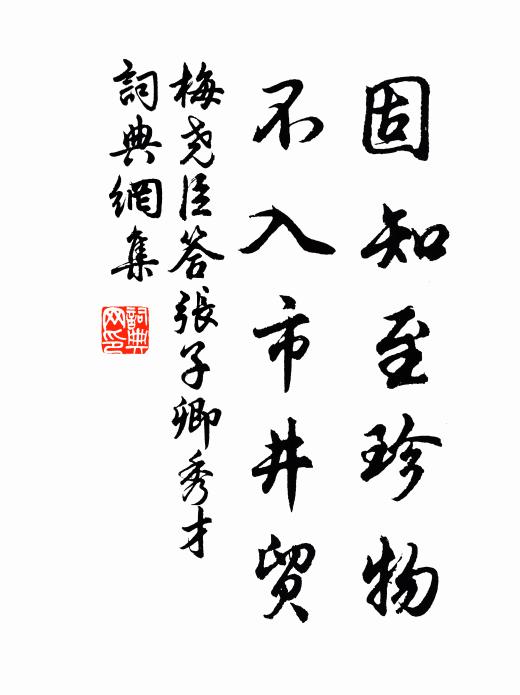 固知至珍物
不入市井貿
梅堯臣答張子卿秀才
詞典網集
詞典网印